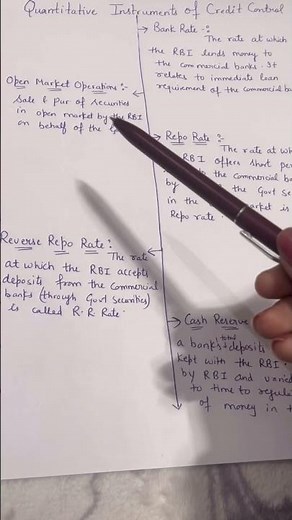 Quantitative Instruments of Credit Control
Bank Rate -:
The rate at which
the RBI lends money to
the commercial banks. It
relates to immediate loan
requirement of the commercial
Open Market Operations :-
Sale & Pur of Securities
in open market by the RBI
on behalf of the
Repo Rate :-
The rate at
RBI offers short
to the commercial
by the Govt
in the is
Repo rate.
Reverse Repo Rate :-
The rate
at which the RBI accepts
deposits from the Commercial
banks (through Govt Securities)
is called R.R Rate.
Cash Reserve
a banks total deposits
kept with the RBI.
by RBI and
to time to
of money in